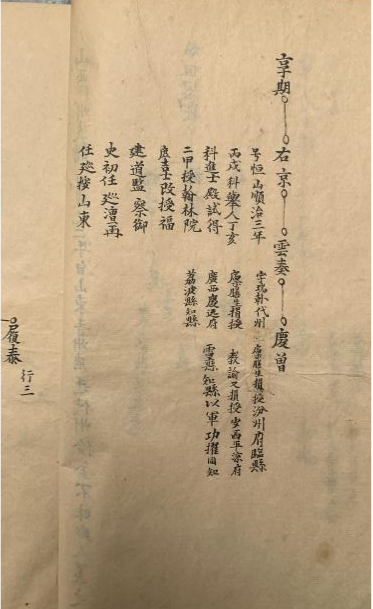 享期 右京 雲奏 慶曾
号恒山順治三年
丙戌科舉人丁亥
科進士殿試得
二甲授翰林院
庶吉士改授福
建道監察御
史初任廵漕再
任廵按山東
字瑞卦代州
廪膳生捐授
廣西慶远府
荔波縣知縣
廪膳生捐授汾州府臨縣
教諭又捐授 西平凉府
靈臺知縣以軍功擢同知
履泰 行三